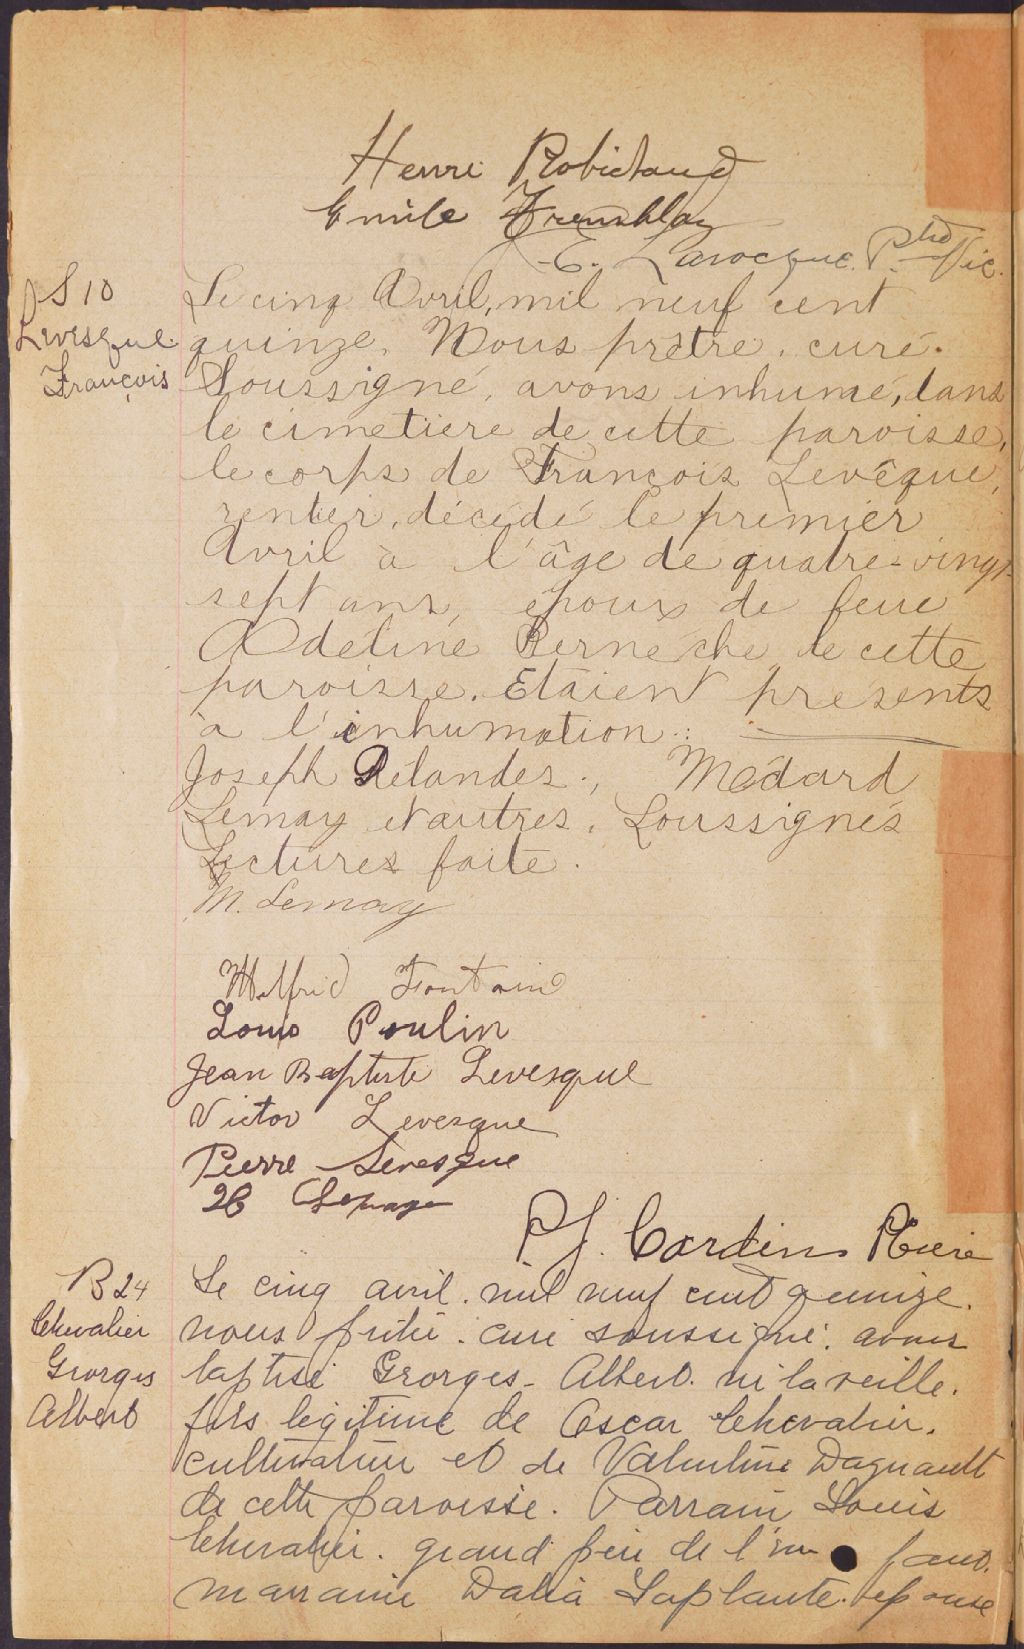 Henri Robidaud
Emile Tremblay
E. Larocque. Ptre Vic.
S 10
Levesque
François
Le cinq Avril, mil neuf cent
quinze, Nous prêtre, curé.
Soussigné, avons inhumé, dans
le cimetière de cette paroisse,
le corps de François Levêque,
rentier, décédé le premier
Avril à l'âge de quatre-vingt
sept ans, époux de feue
Adeline Bernèche de cette
paroisse. Etaient présents
à l'inhumation:
Joseph Délandes, Médard
Lemay et autres, Soussignés
Lectures faite.
M. Lemay
Wilfrid Fontain
Louis Poulin
Jean Baptiste Levesque
Victor Levesque
Pierre Levesque
Lepage
P J. Cardin Ptre
B 24
Chevalier
Georges
Albert
Le cinq avril. mil neuf cent quinze.
nous prêtre. curé soussigné. avons
baptisé Georges-Albert. né la veille.
fils légitime de Oscar Chevalier.
cultivateur et de Valentine Daguault
de cette paroisse. Parrain Louis
Chevalier. grand père de l'en fant.
marraine Dalia Laplante. épouse